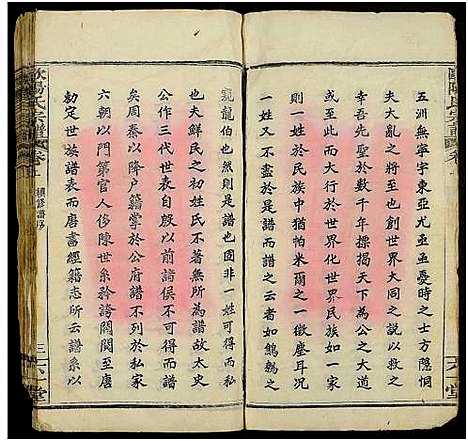 五洲無寧宇東亞尤亟亟憂時之士方隱恫
夫大亂之將至也創世界大同之說以救之
幸吾先聖於數千年標揭天下為公之大道
以世界於世界化世界民族如一家
於民族中猶帕米爾之一微塵耳況
是譜之云者如鷦鷯之
窺龍伯也然則是譜也固非一姓可得而私
也夫鮮民之初姓氏不著無所為譜故太史
公作三代世表自殷以前諸侯不可得而譜
矣周秦以降户籍掌於公府譜不列於私家
六朝以門第官人侈陳世系矜誇閥閱至唐
勅定世族譜表而唐書經籍志所云譜狀
歐陽氏宗譜
卷首
續修譜序
三
六一堂
歐陽氏宗譜
卷首
六一堂